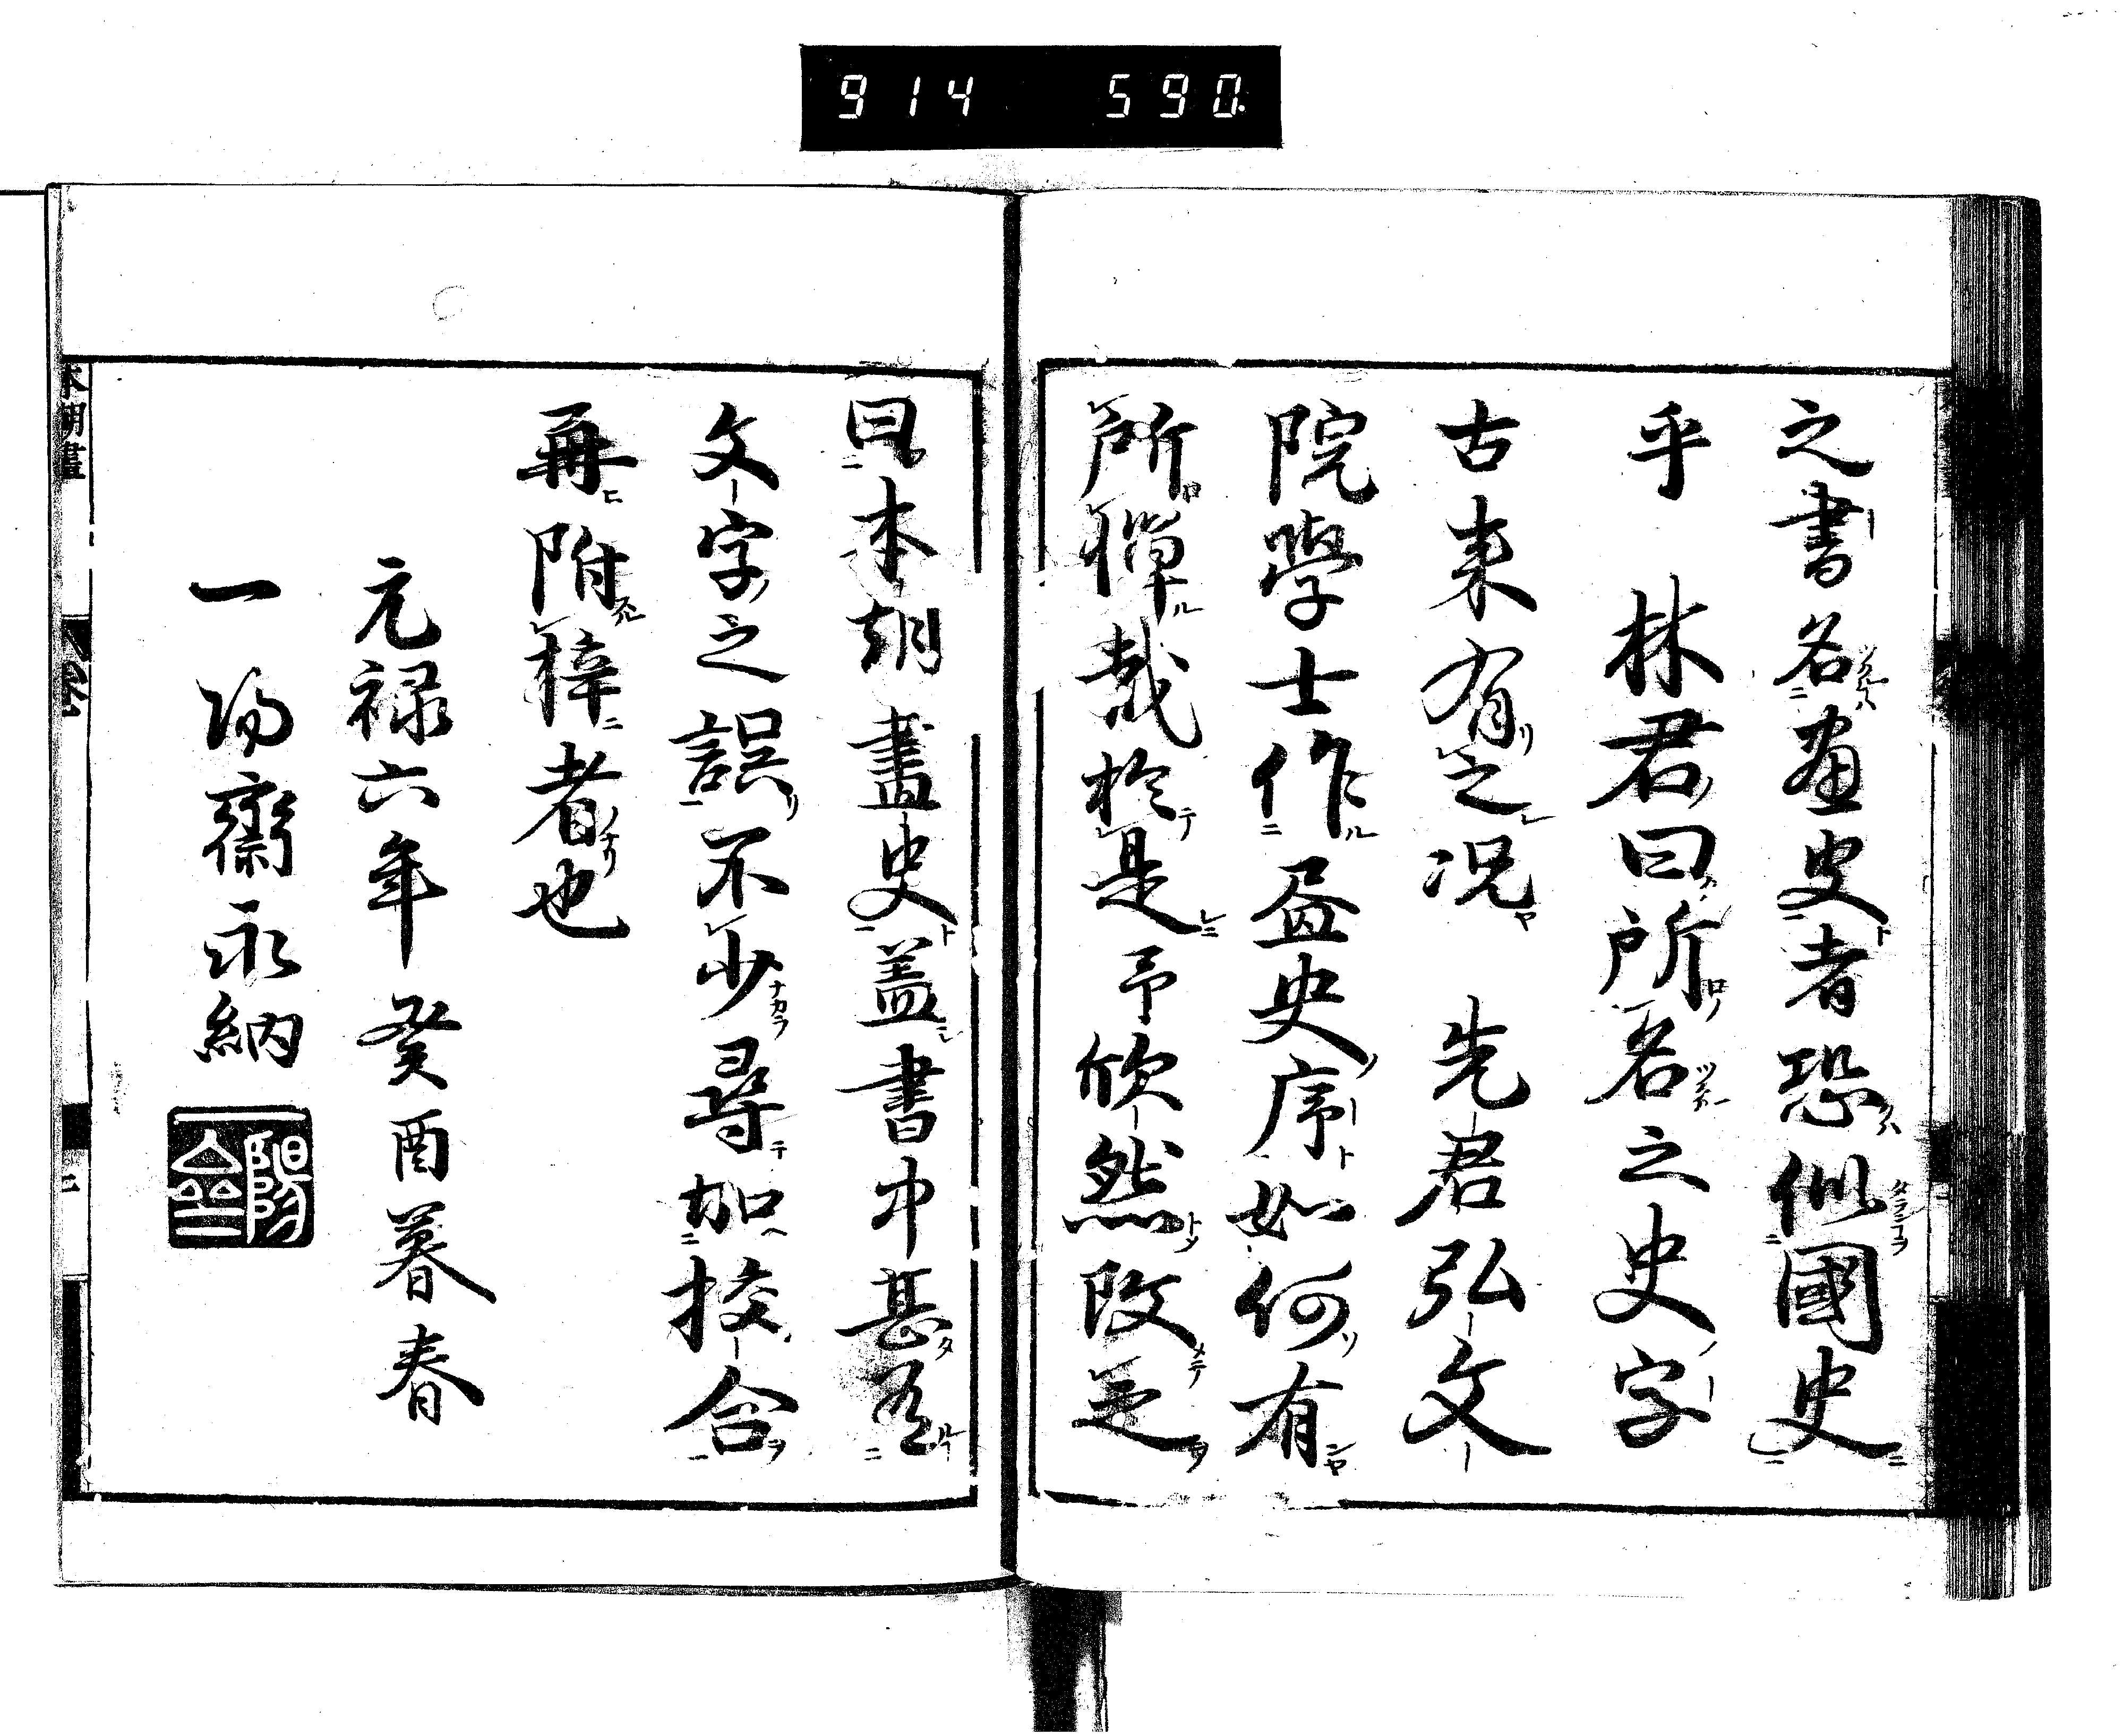 914 590
之書名畫史者恐似國史
乎 林君曰所名之史字
古来有之况 先君弘文
院學士作畫史序如何有
所憚哉於是予欣然改之
曰本朝畫史蓋書中甚
文字之誤不少尋加挍合
再附梓者也
元禄六年癸酉暮春
一陽齋永納
本朝畫